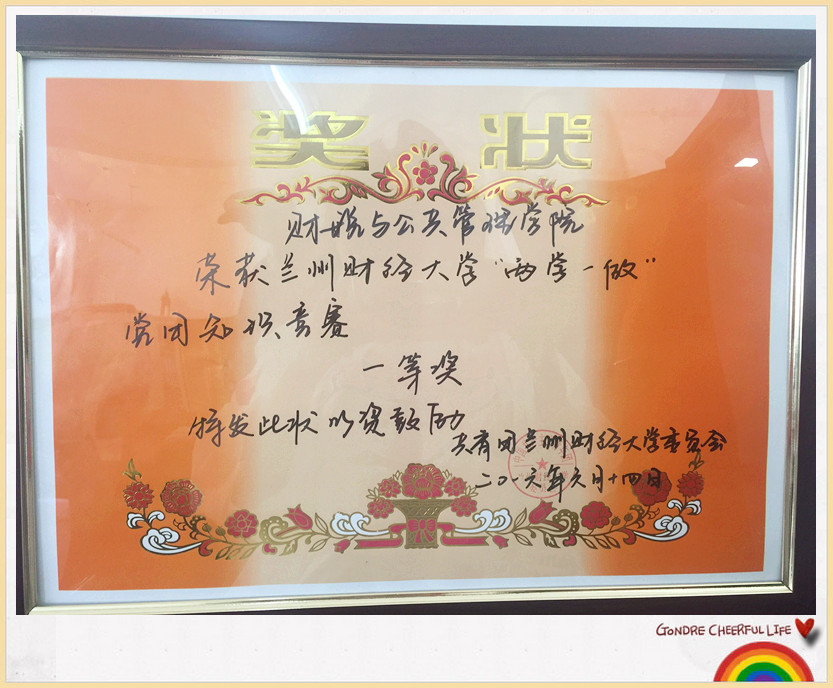 奖状
财税与公共管理学院
荣获兰州财经大学“两学一做”
党团知识竞赛
一等奖
特发此状以资鼓励
共青团兰州财经大学委员会
二〇一六年六月十四日
GONDRE CHEERFUL LIFE